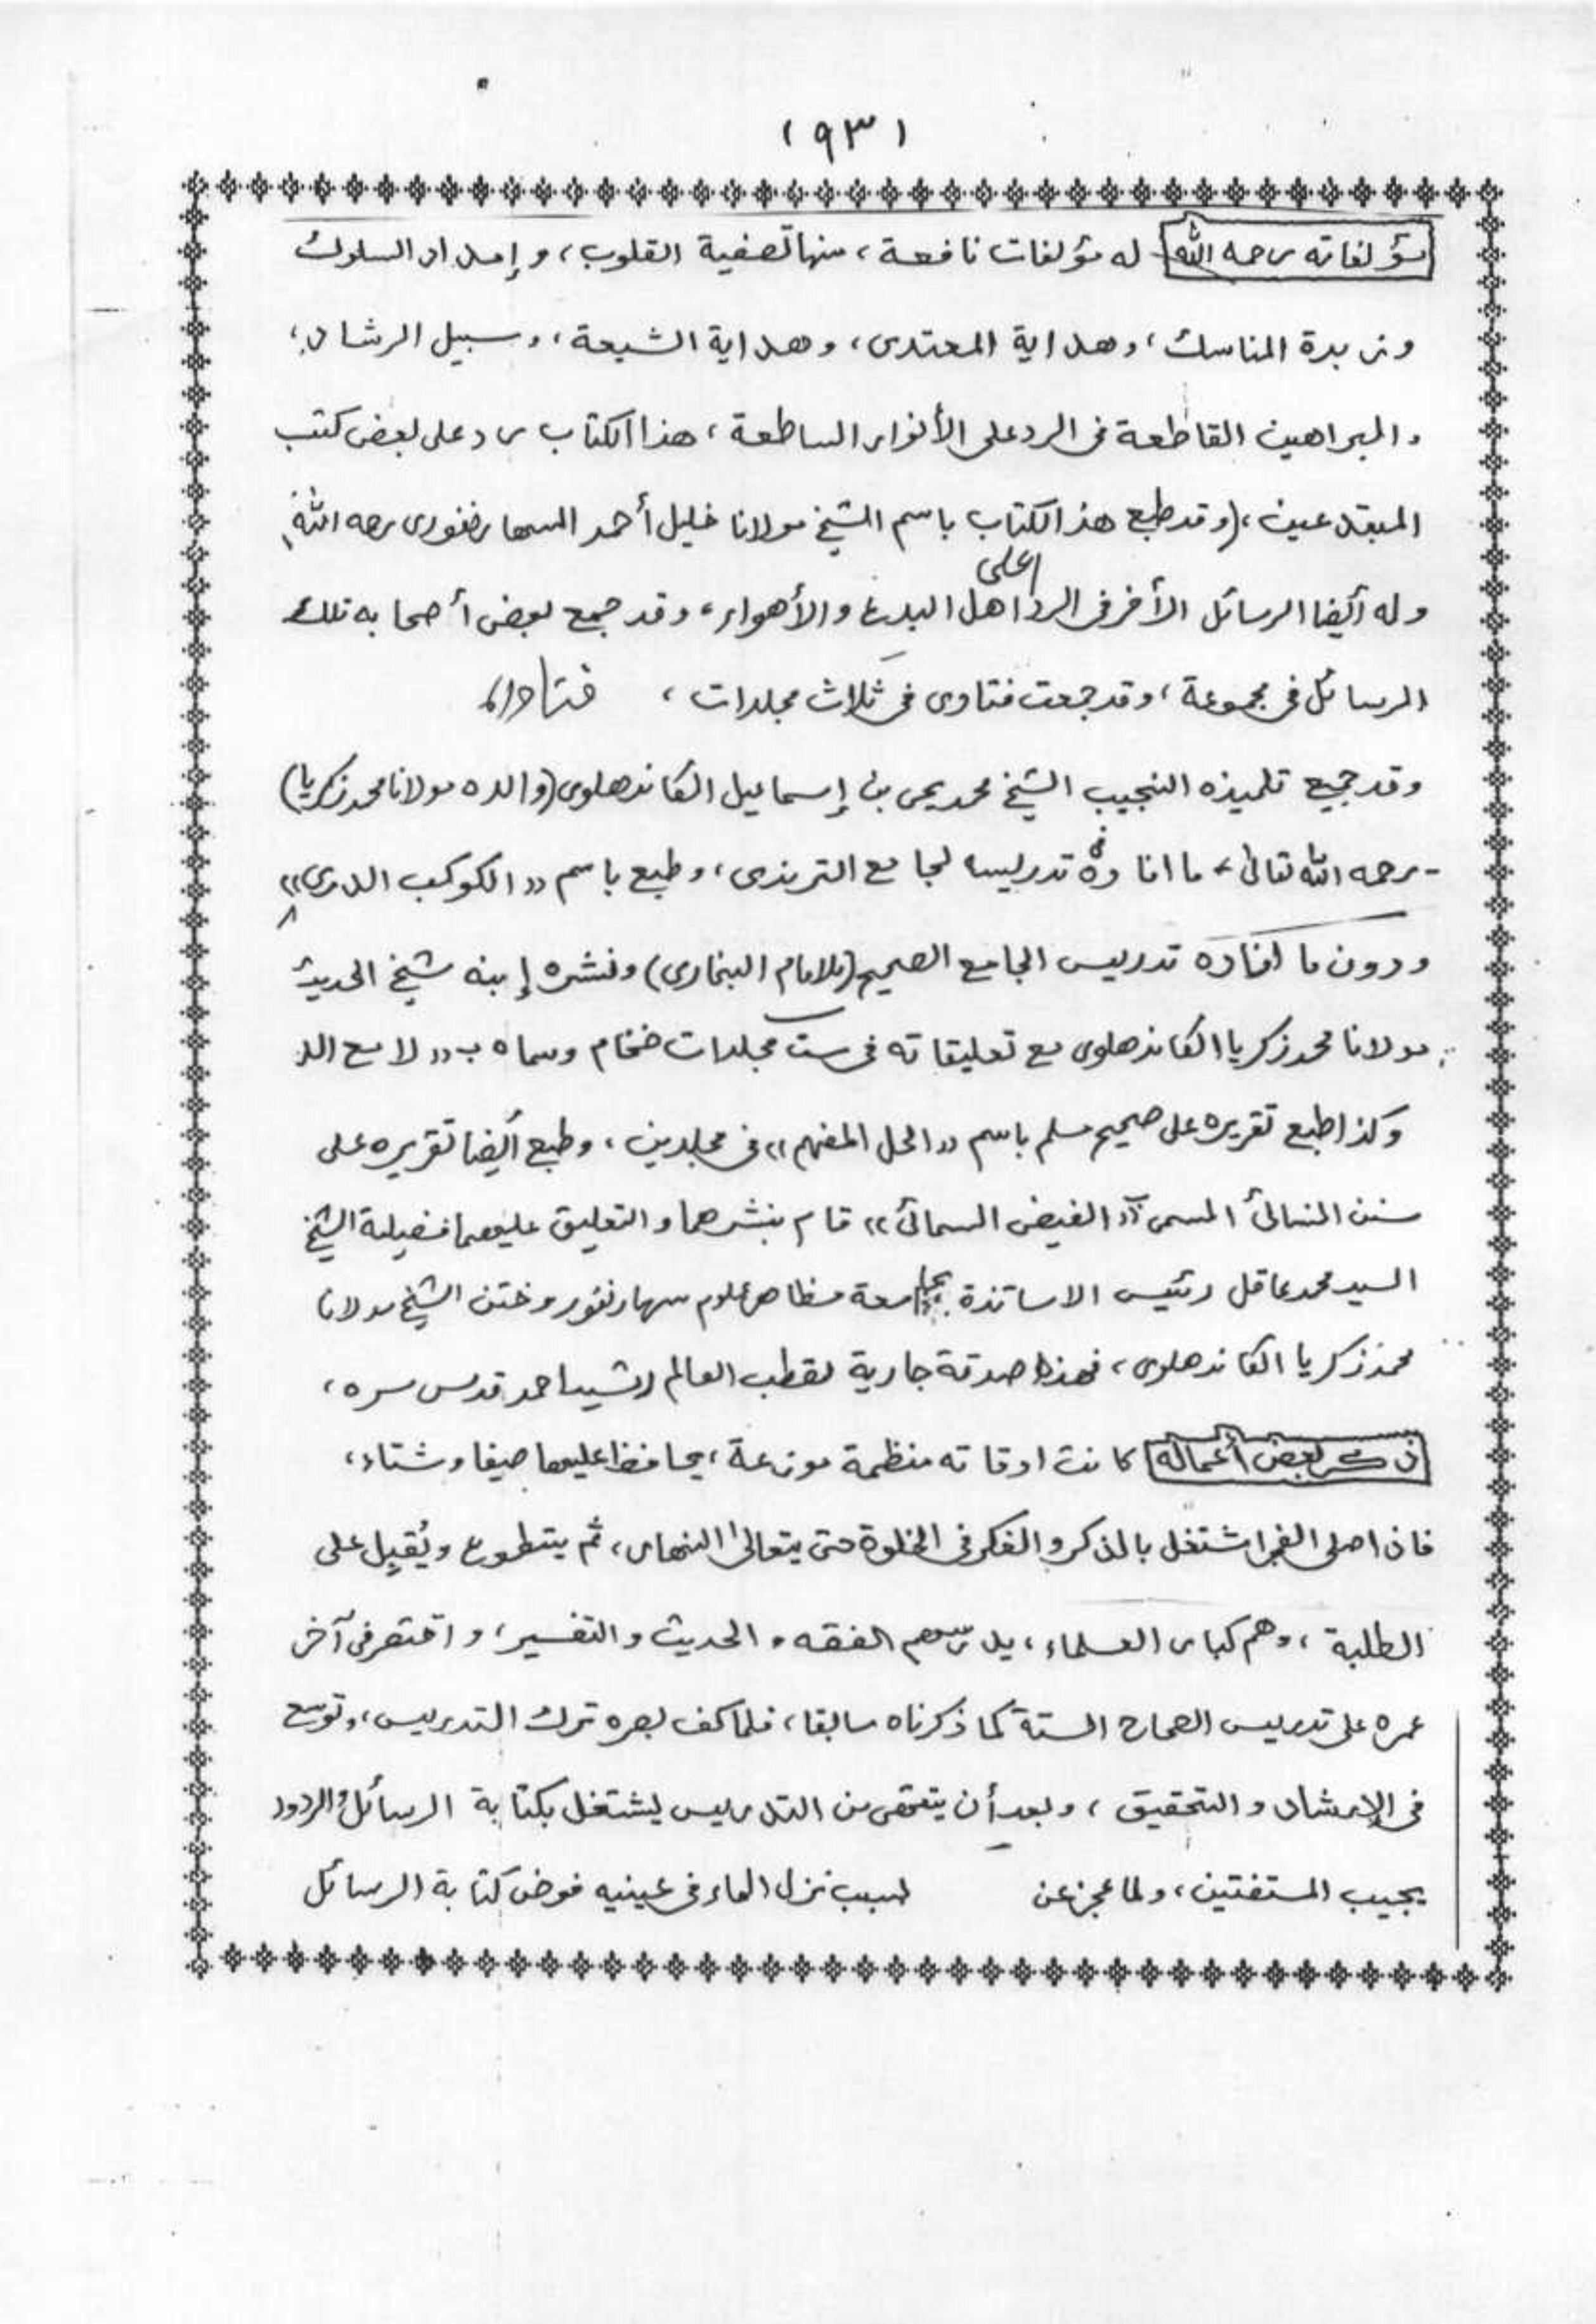 (٩٣)
مؤلفاته رحمه الله له مؤلفات نافعة، منها تصفية القلوب، وإمداد السلوك
وزبدة المناسك، وهداية المعتدى، وهداية الشيعة، وسبيل الرشاد،
والبراهين القاطعة فى الرد على الأنوار الساطعة، هذا الكتاب رد على بعض كتب
المبتدعين، (وقد طبع هذا الكتاب باسم الشيخ مولانا خليل أحمد السهارنفورى رحمه الله)
وله أيضا الرسائل الأخر فى الرد على اهل البدع والأهواء، وقد جمع بعض أصحابه تلك
الرسائل فى مجموعة، وقد جمعت فتاوى فى ثلاث مجلدات،
وقد جمع تلميذه النجيب الشيخ محمد يحى بن إسماعيل الكاندهلوى (والده مولانا محمد زكريا)
- رحمه الله تعالى - ما افاده فى تدريسه لجامع الترمذى، وطبع باسم «الكوكب الدرى»
ودون ما افاده تدريس الجامع الصحيح (للامام البخارى) ونشره إبنه شيخ الحديث
مولانا محمد زكريا الكاندهلوى مع تعليقاته فى ست مجلدات ضخام وسماه ب «لامع الد
وكذا طبع تقريره على صحيح مسلم باسم «الحل المفهم» فى مجلدين، وطبع أيضا تقريره على
سنن النسائى المسمى «الفيض السمائى» قام بنشرهما والتعليق عليهما فضيلة الشيخ
السيد محمد عاقل رئيس الاساتذة بجامعة مظاهر علوم سهارنفور وختن الشيخ مولانا
محمد زكريا الكاندهلوى، فهذا صدقة جارية لقطب العالم رشيد احمد قدس سره،
ذكر بعض أعماله كانت اوقاته منظمة موزعة، يحافظ عليها صيفا وشتاء،
فاذا صلى الفجر اشتغل بالذكر والفكر فى الخلوة حتى يتعالى النهار، ثم يتطوع ويُقبِل على
الطلبة، وهم كبار العلماء، يدرسهم الفقه والحديث والتفسير، واقتصر فى آخر
عمره على تدريس الصحاح الستة كما ذكرناه سابقا، فلما كف بصره ترك التدريس، وتوسع
فى الإرشاد والتحقيق، وبعد أن من التدريس ليشتغل بكتابة الرسائل والردود
يجيب المستفتين، ولما عجز عن لسبب نزل الماء فى عينيه فوض كتابة الرسائل